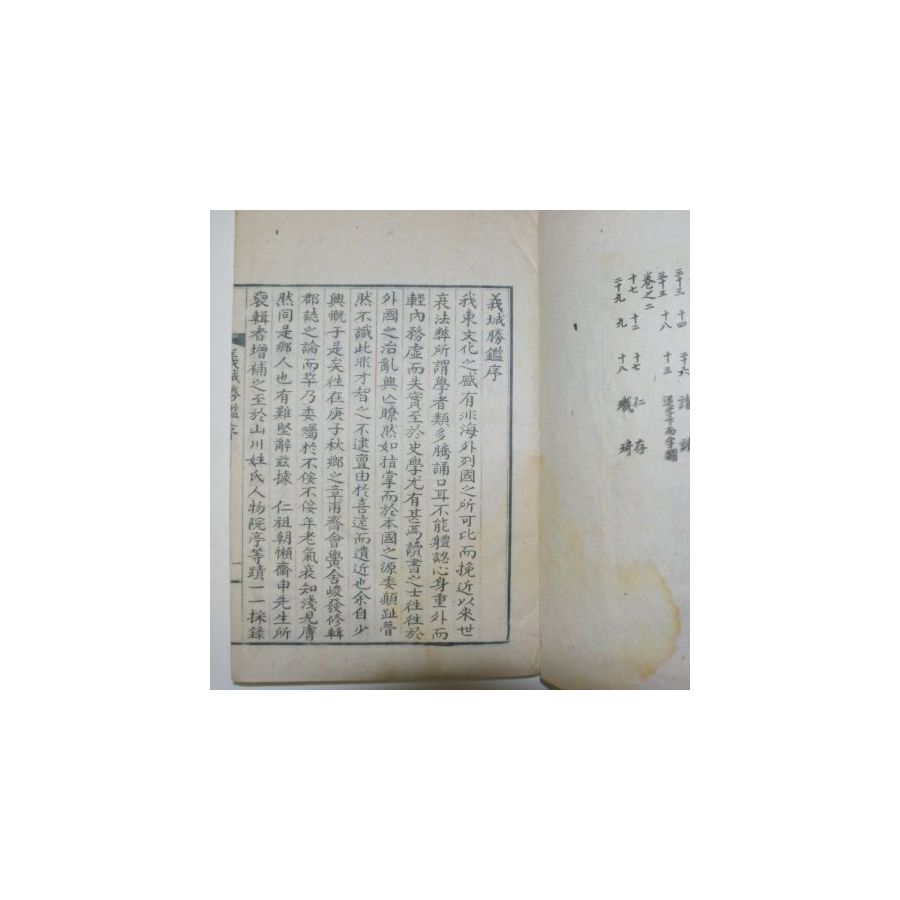 三十三 十四 二十六 諸 諸
三十五 十八 十三
卷之二
十七 十二 十七 仁 存
二十九 九 十八 璣 琦
義城勝鑑序
我東文化之盛有非海外列國之所可比而挽近以來世
衰法弊所謂學者類多騰誦口耳不能軆認心身重外而
輕內務虛而失實至於史學尤有甚焉讀書之士徃徃於
外國之治亂興亾瞭然如指掌而於本國之源委顛趾瞢
然不識此非才智之不逮亶由於喜遠而遺近也余自少
興慨于是矣徃在庚子秋鄉之章甫齊會黌舍峻發修輯
郡誌之論而草乃委囑於不佞不佞年老氣衰知淺見膚
然同是鄉人也有難堅辭玆據 仁祖朝懶齋申先生所
裒輯者增補之至於山川姓氏人物院亭等蹟一一採錄
義城勝鑑序
一